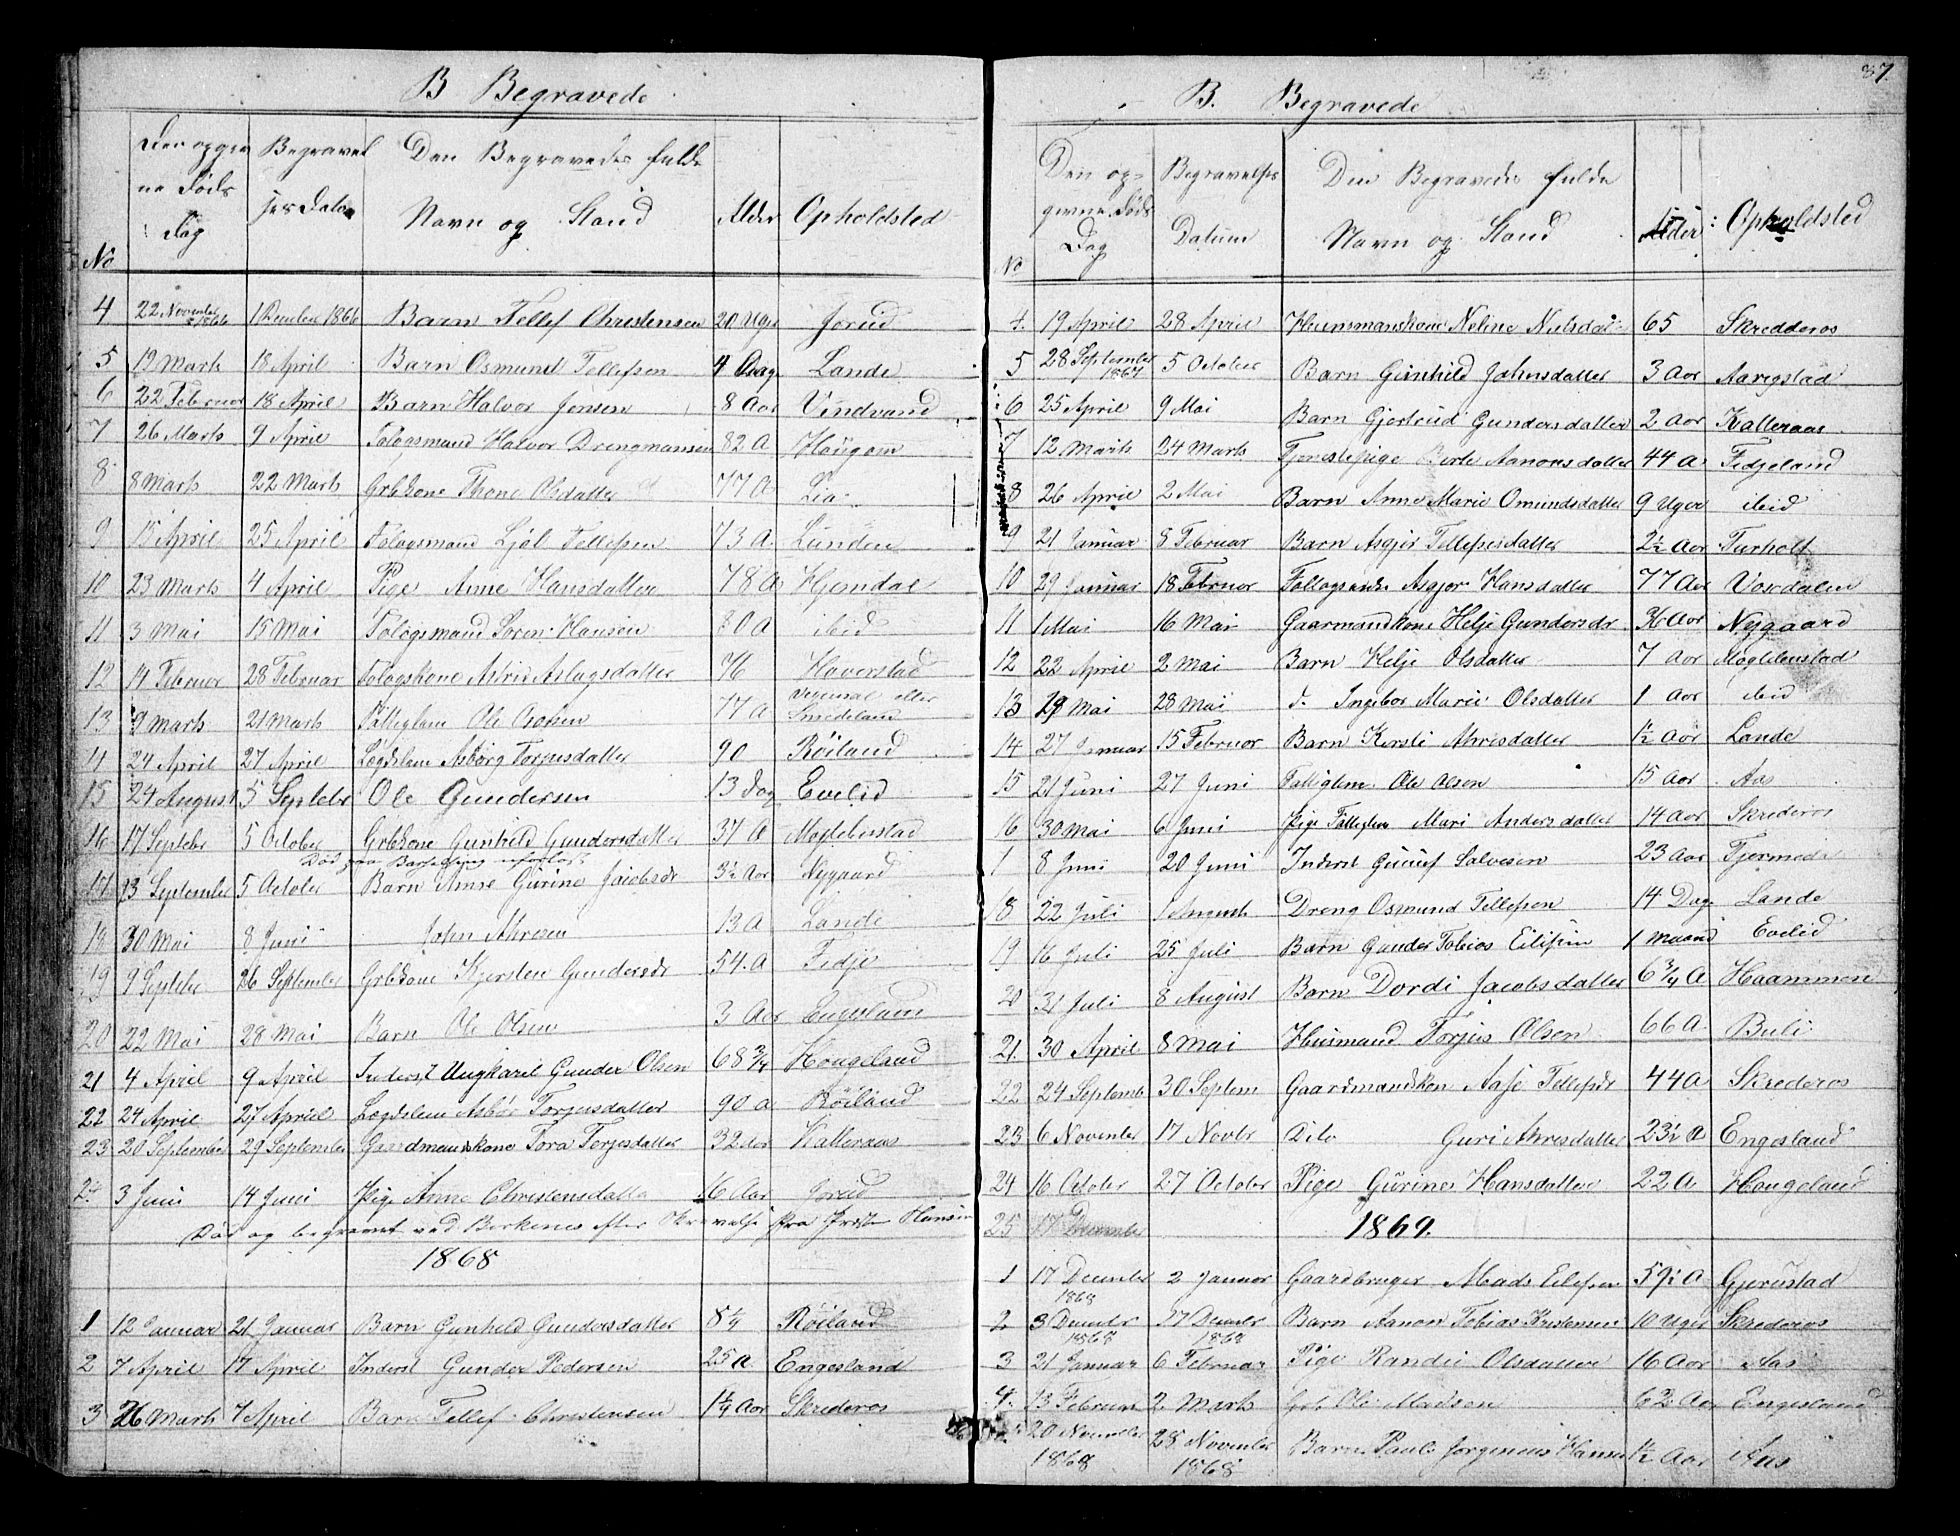 B Begravede
Den opgiv
ne Føds
Dag
Begravel
ses Datum
Den Begravedes fulde
Navn og Stand
Alder
Opholdsted
No
4 22 November 1866 1 December 1866 Barn Tellef Christensen 20 Uger Jorud
5 19 Marts 18 April Barn Osmund Tellefsen 4 Dage Lande
6 22 Februar 18 April Barn Halvor Jensen 8 Aar Vindvand
7 26 Marts 9 April Fologsmand Halvor Drengmansen 82 A Hougom
8 8 Marts 22 Marts Grbkone Thone Olsdatter 77 A Lia
9 15 April 25 April Fologsmand Ljøl Tellefsen 73 A Lunden
10 23 Marts 4 April Pige Anne Hansdatter 78 A Hjemdal
11 3 Mai 15 Mai Fologsmand Søren Hansen 80 A ibid
12 14 Februar 28 Februar Fologskone Astrie Aslagsdatter 76 Haverstad
13 9 Marts 21 Marts Fattiglem Ole 77 A eller Smedeland
14 24 April 27 April Lægdslem Asbørg Torjusdatter 90 Røiland
15 24 August 5 Septebr Ole Gundersen 13 Dag Evelid
16 17 Septebr 5 October Grbkone Gunhild Gundersdatter 37 A Mogleberstad
Død paa Barselseng uforløst
17 13 September 5 October Barn Anne Gurine Jacobsdr 3½ Aar Nygaard
18 30 Mai 8 Juni John Ahresen 13 A Lande
19 9 Septebr 26 September Grbkone Kjersten Gundersdr 54 A Fedje
20 22 Mai 28 Mai Barn Ole Olsen 3 Aar Engesland
21 4 April 9 April Inderst Ungkarl Gunder Olsen 68 3/4 Hougeland
22 24 April 27 April Lægdslem Asbør Torjusdatter 90 A Røiland
23 20 September 29 September Gaardmandskone Tora Terjesdatter 32 Aar Kalleraas
24 3 Juni 14 Juni Pige Anne Christensdatter 6 Aar Jorud
Død og begravet ved Birkenes efter fra Præsten Hansen
1868
1 12 Januar 21 Januar Barn Gunhild Gundersdatter 8 1/4 Røiland
2 7 April 17 April Inderst Gunder Pedersen 25 A Engesland
3 26 Marts 7 April Barn Tellef Christensen 1 1/4 Aar Skrederos
87
B. Begravede
Den op-
givne Føds
Dag
Begravelses
Datum
Den Begravedes fulde
Navn og Stand
Alder
Opholdsted
No
4 19 April 28 April Huusmandskone Neline Nielsdat 65 Skredderos
5 28 September 1867 5 October Barn Gunhild Johnsdatter 3 Aar Aarigstad
6 25 April 9 Mai Barn Gjertrud Gundersdatter 2 Aar Kalleraas
7 12 Marts 24 Marts Tjenestepige Berte Aanonsdatter 44 A Fedjeland
8 26 April 2 Mai Barn Anne Marie Omundsdatter 9 Uger ibid
9 21 Januar 8 Februar Barn Asgjer Tellefsesdatter 2½ Aar Furholt
10 29 Januar 18 Februar Asgjer Hansdatter 77 Aar Vordalen
11 1 Mai 16 Mai Gaarmandkone Helje Gundersdr 36 Aar Nygaard
12 22 April 2 Mai Barn Helje Olsdatter 7 Aar Moglebustad
13 29 Mai 28 Mai d. Ingebor Marie Olsdatter 1 Aar ibid
14 27 Januar 15 Februar Barn Kersti Ahresdatter 1½ Aar Lande
15 21 Juni 27 Juni Fattiglem Ole Olsen 15 Aar Aas
16 30 Mai 6 Juni Pige Fattiglem Mari Andersdatter 14 Aar Skrederos
1 8 Juni 20 Juni Inderst Salvesen 23 Aar
18 22 Juli 1 August Dreng Osmund Tellefsen 14 Dage Lande
19 16 Juli 25 Juli Barn Gunder Tobias Eilefsen 1 Maaned Evelid
20 31 Juli 8 August Barn Dordi Jacobsdatter 6 3/4 A Haammen
21. 30 April 8 Mai Husmand Torjus Olsen 66 A Buli
22 24 Septemb 30 Septem Gaardmandskon Aase Tellefsdr 44 A Skrederos
23 6 November 17 Novbr Dito Guri Ahresdatter 23½ A Engesland
24 16 October 27 October Pige Gurine Hansdatter 22 A Hougeland
25 17 December
1869.
1 17 December 1868 2 Januar Gaardbruger Mads Eilefsen 59½ A Gjerustad
2 3 December 1868 27 December 1868 Barn Aanon Tobias Kristensen 10 Uger Skrederos
3 21 Januar 6 Februar Pige Randie Olsdatter 16 Aar Aas
4. 13 Februar 2 Marts Grb Ole Madsen 62 Aar Engesland
5 20 November 1868 28 November 1868 Barn Paul Jorgenius Hansen 1½ Aar Aas